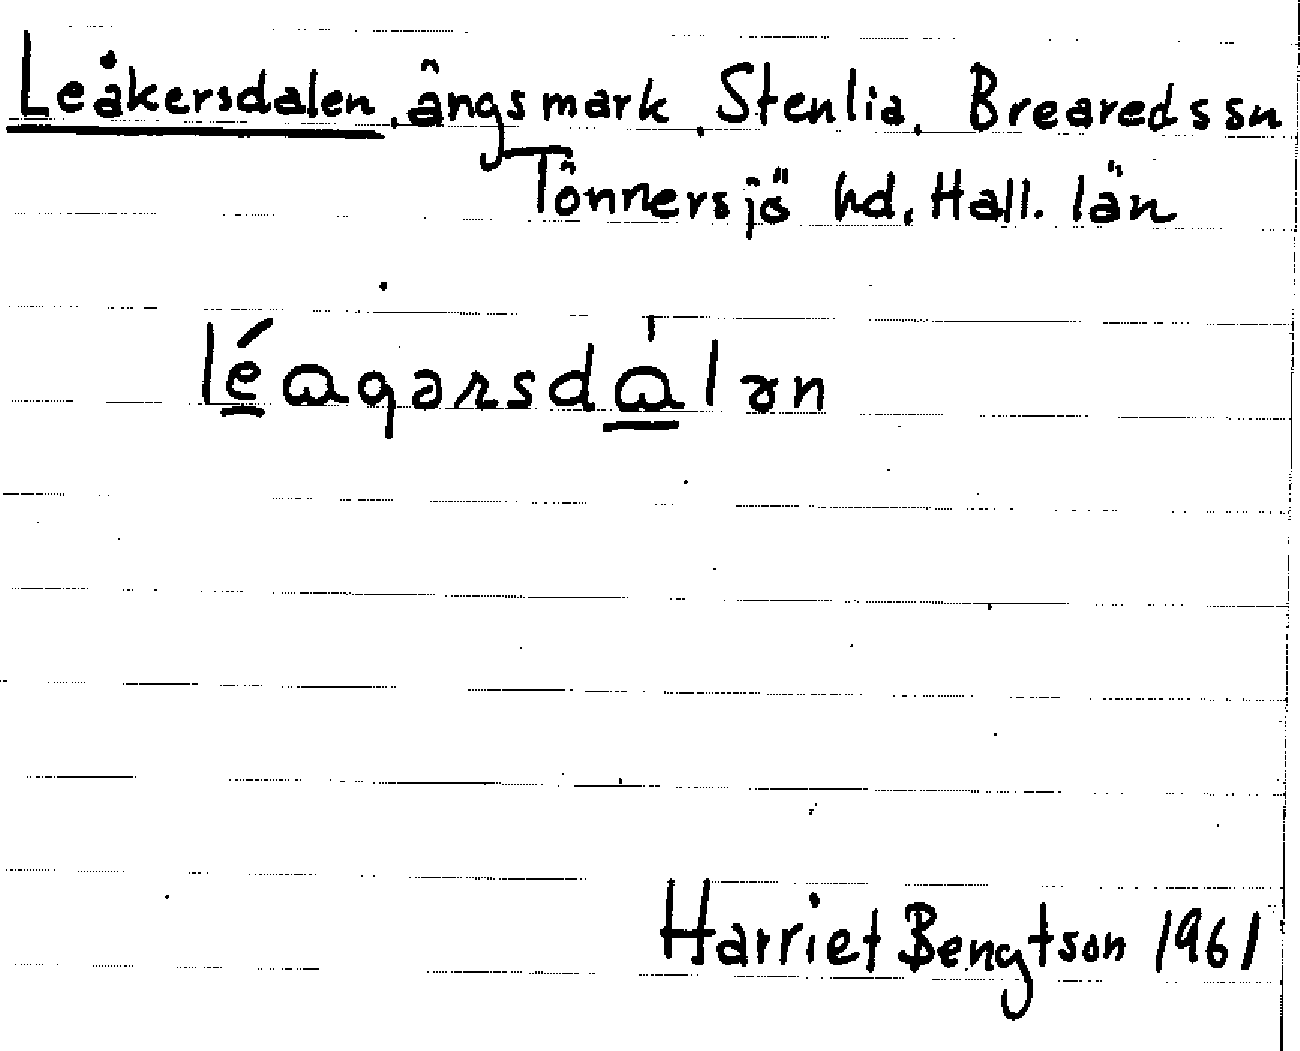 Leåkersdalen, ängsmark, Stenlia, Breareds sn
Tönnersjö hd, Hall. län
léagərsdálən
Harriet Bengtson 1961